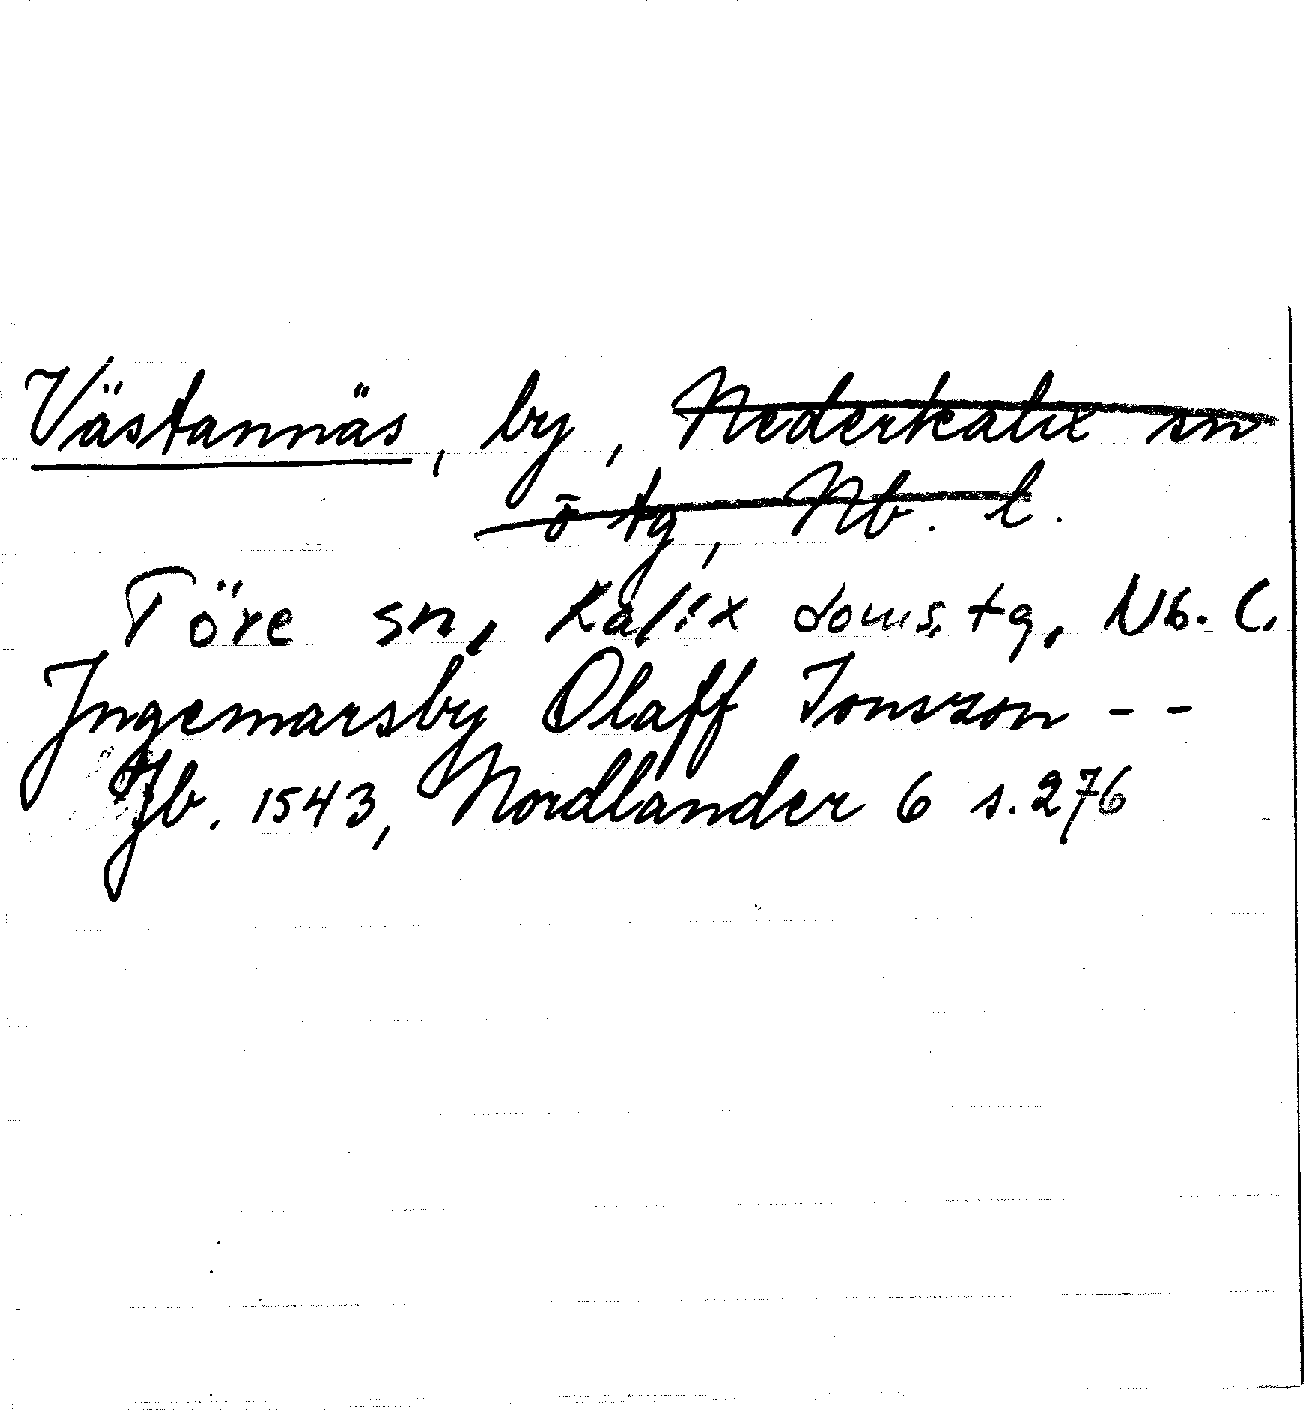 Västannäs, by, Nederkalix sn
ö tg, Nb. l.
Töre sn, Kalix doms. tg, Nb. l.
Ingemarsby Olaff Jonszon - -
Jb. 1543, Nordlander 6 s. 276